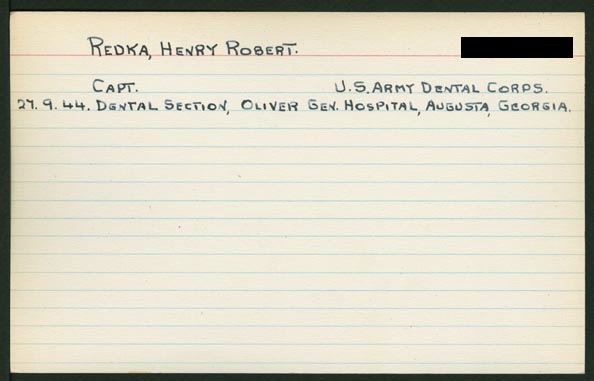 REDKA, HENRY ROBERT.
CAPT. U.S. ARMY DENTAL CORPS.
27. 9. 44. DENTAL SECTION, OLIVER GEN. HOSPITAL, AUGUSTA, GEORGIA.